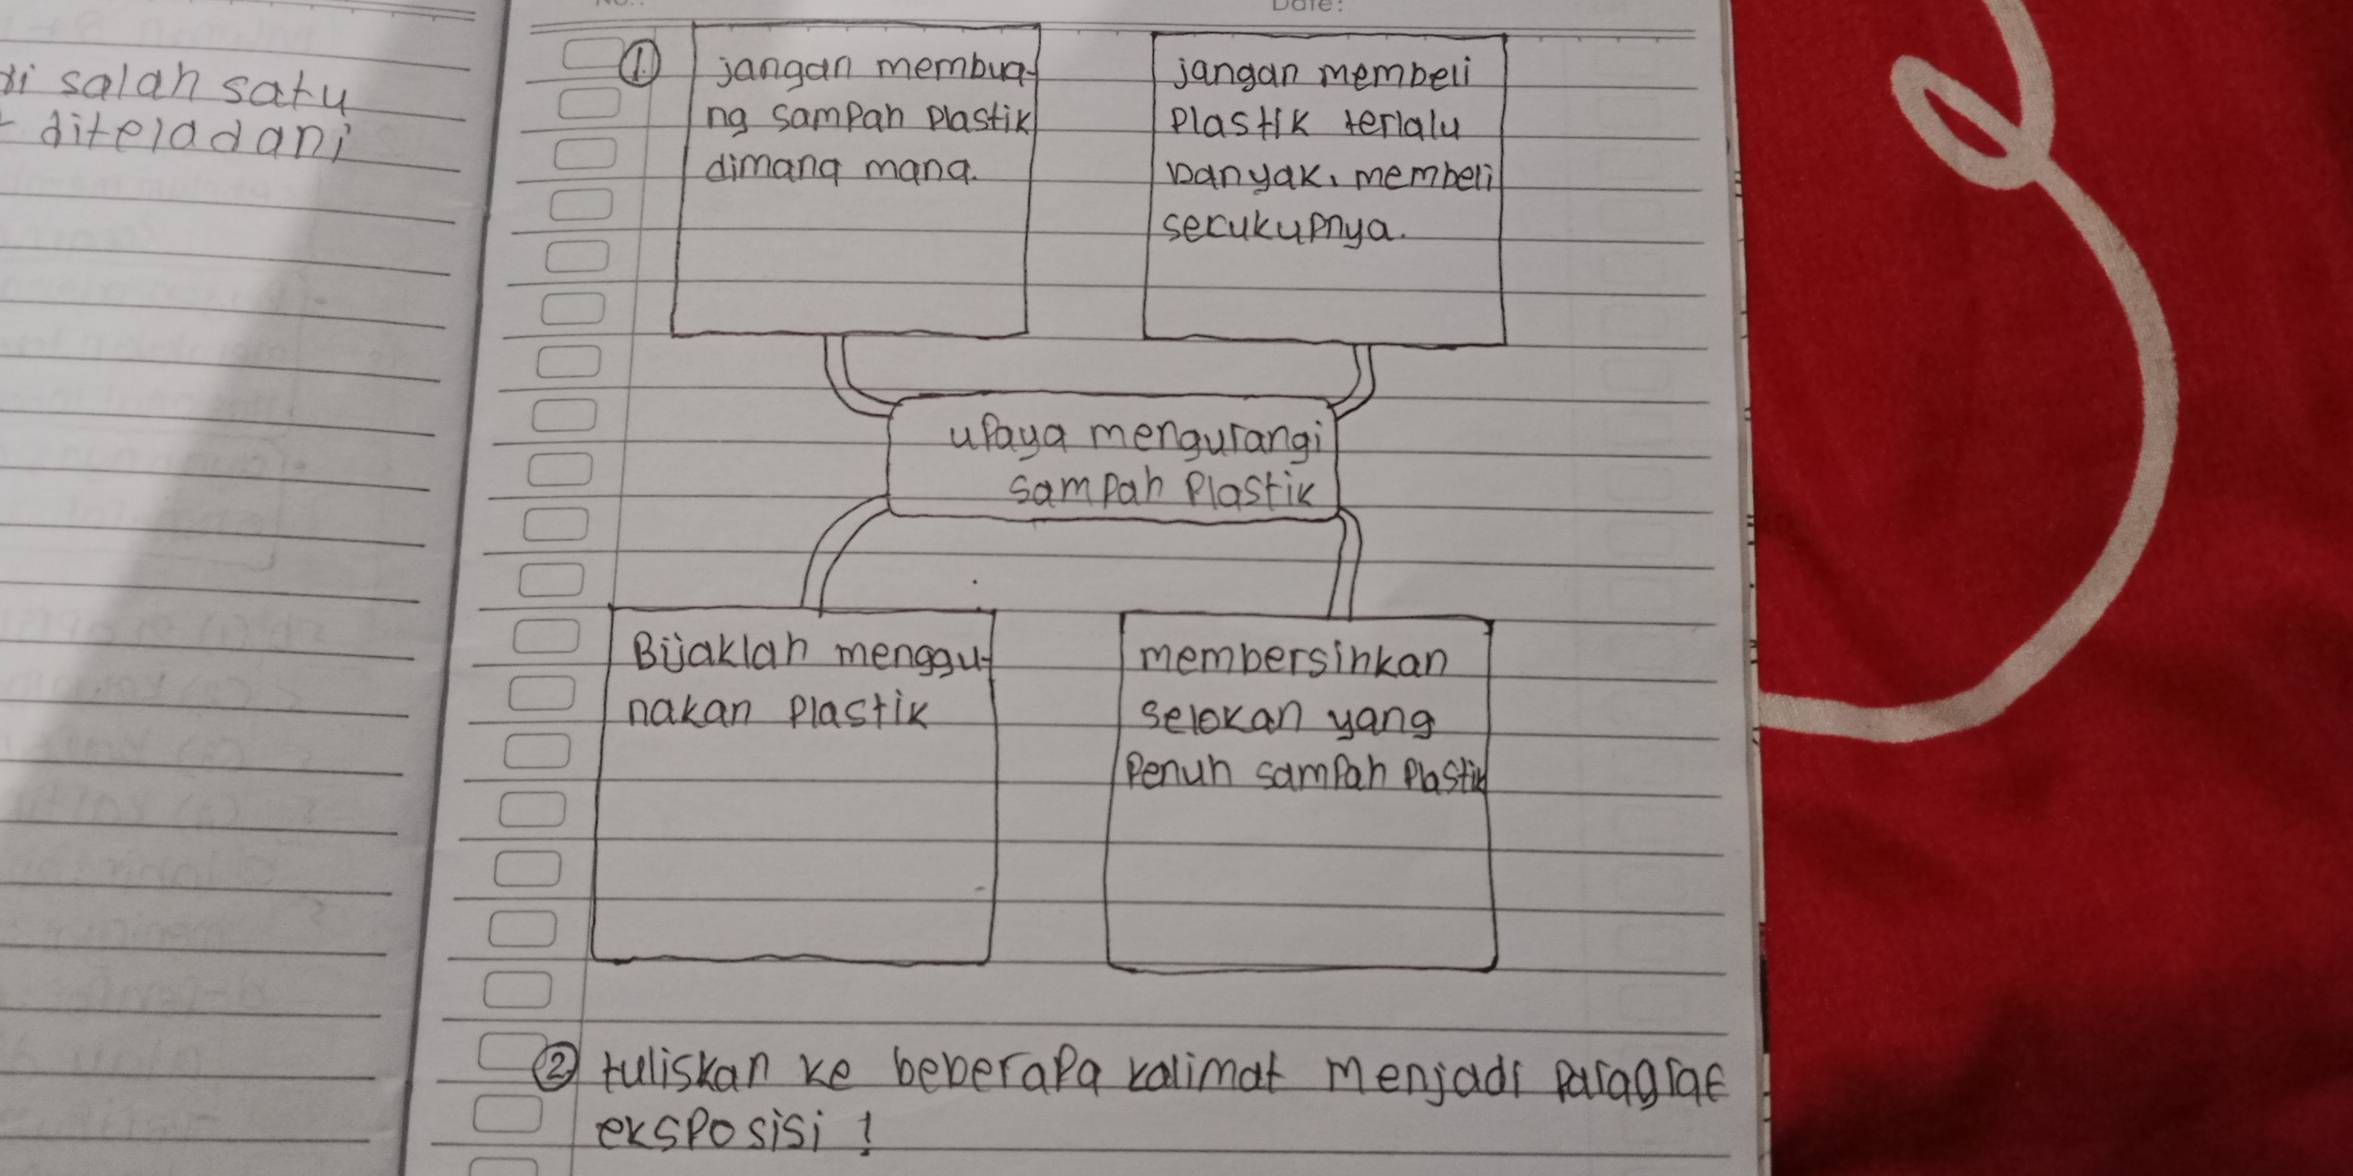 Date:
di salah satu
diteladani
① jangan membua-
ng sampah plastik
dimana mana.
jangan membeli
plastik terlalu
banyak, membeli
secukupnya.
upaya mengurangi
sampah plastik
Bijaklah menggu-
nakan plastik
membersihkan
selokan yang
penuh sampah plastik
② tuliskan ke beberapa kalimat menjadi paragraf
eksposisi !